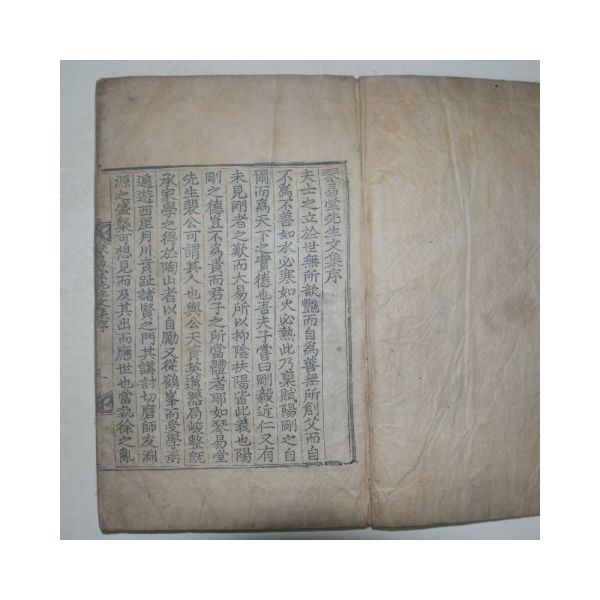 琴易堂先生文集序
夫士之立於世無所歆艷而自為善無所創艾而自
不為不善如水必寒如火必熱此乃稟賦陽剛之自
爾而為天下之實德也吾夫子嘗曰剛毅近仁又有
未見剛者之歎而大易所以抑陰扶陽皆此義也陽
剛之德豈不為貴而君子之所當體者耶如琴易堂
先生裴公可謂其人也與公天資英邁器局峻整旣
承家學之得於陶山者以自勵又從鶴峯而受學焉
遍遊西厓月川貢趾諸賢之門其講討切磨師友淵
源之盛槩可想見而及其出而應世也當執徐之亂
琴易堂先生文集序